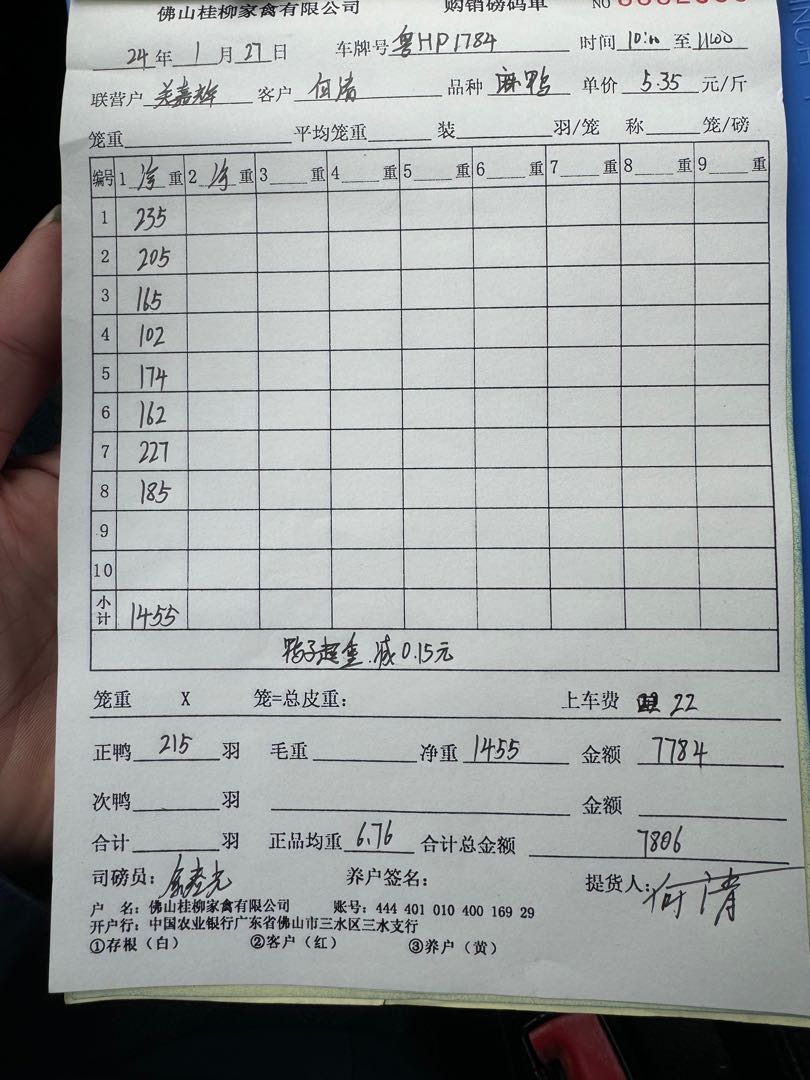 佛山桂柳家禽有限公司 购销磅码单 NO
24年1月27日 车牌号 粤HP1784 时间 10:00 至 11:00
联营户 关嘉辉 客户 何清 品种 麻鸭 单价 5.35 元/斤
笼重 平均笼重 装 羽/笼 称 笼/磅
编号 1 净 重 2 净 重 3 重 4 重 5 重 6 重 7 重 8 重 9 重
1 235
2 205
3 165
4 102
5 174
6 162
7 227
8 185
9
10
小计 1455
鸭子超重.减0.15元
笼重 X 笼=总皮重: 上车费 22
正鸭 215 羽 毛重 净重 1455 金额 7784
次鸭 羽 金额
合计 羽 正品均重 6.76 合计总金额 7806
司磅员: 养户签名: 提货人: 何清
户 名: 佛山桂柳家禽有限公司 账号: 444 401 010 400 169 29
开户行: 中国农业银行广东省佛山市三水区三水支行
①存根(白) ②客户(红) ③养户(黄)